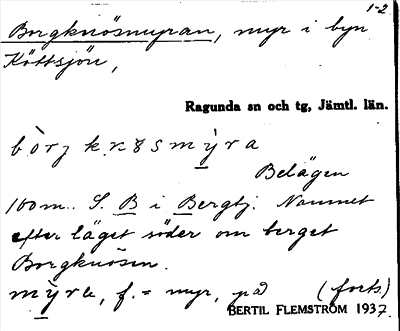 1-2
Borgknösmyran, myr i byn
Köttsjön,
Ragunda sn och tg, Jämtl. län.
Belägen
100 m. S. B i Bergtj. Namnet
efter läget söder om berget
Borgknösen.
myra, f. = myr, på (forts.)
BERTIL FLEMSTRÖM 1937.